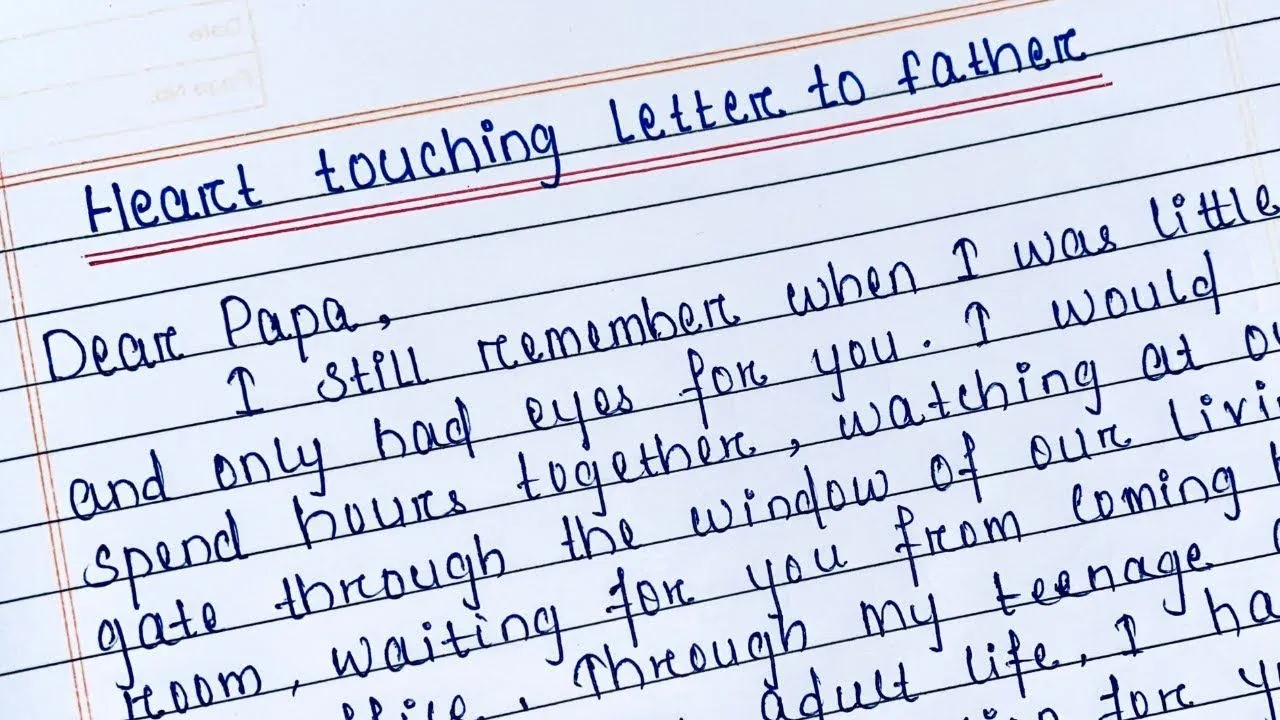 Heart touching letter to father
Dear Papa,
I still remember when I was little
and only had eyes for you. I would
spend hours together, watching at
gate through the window of our
room, waiting for you from coming
Through my teenage
adult life, I
for